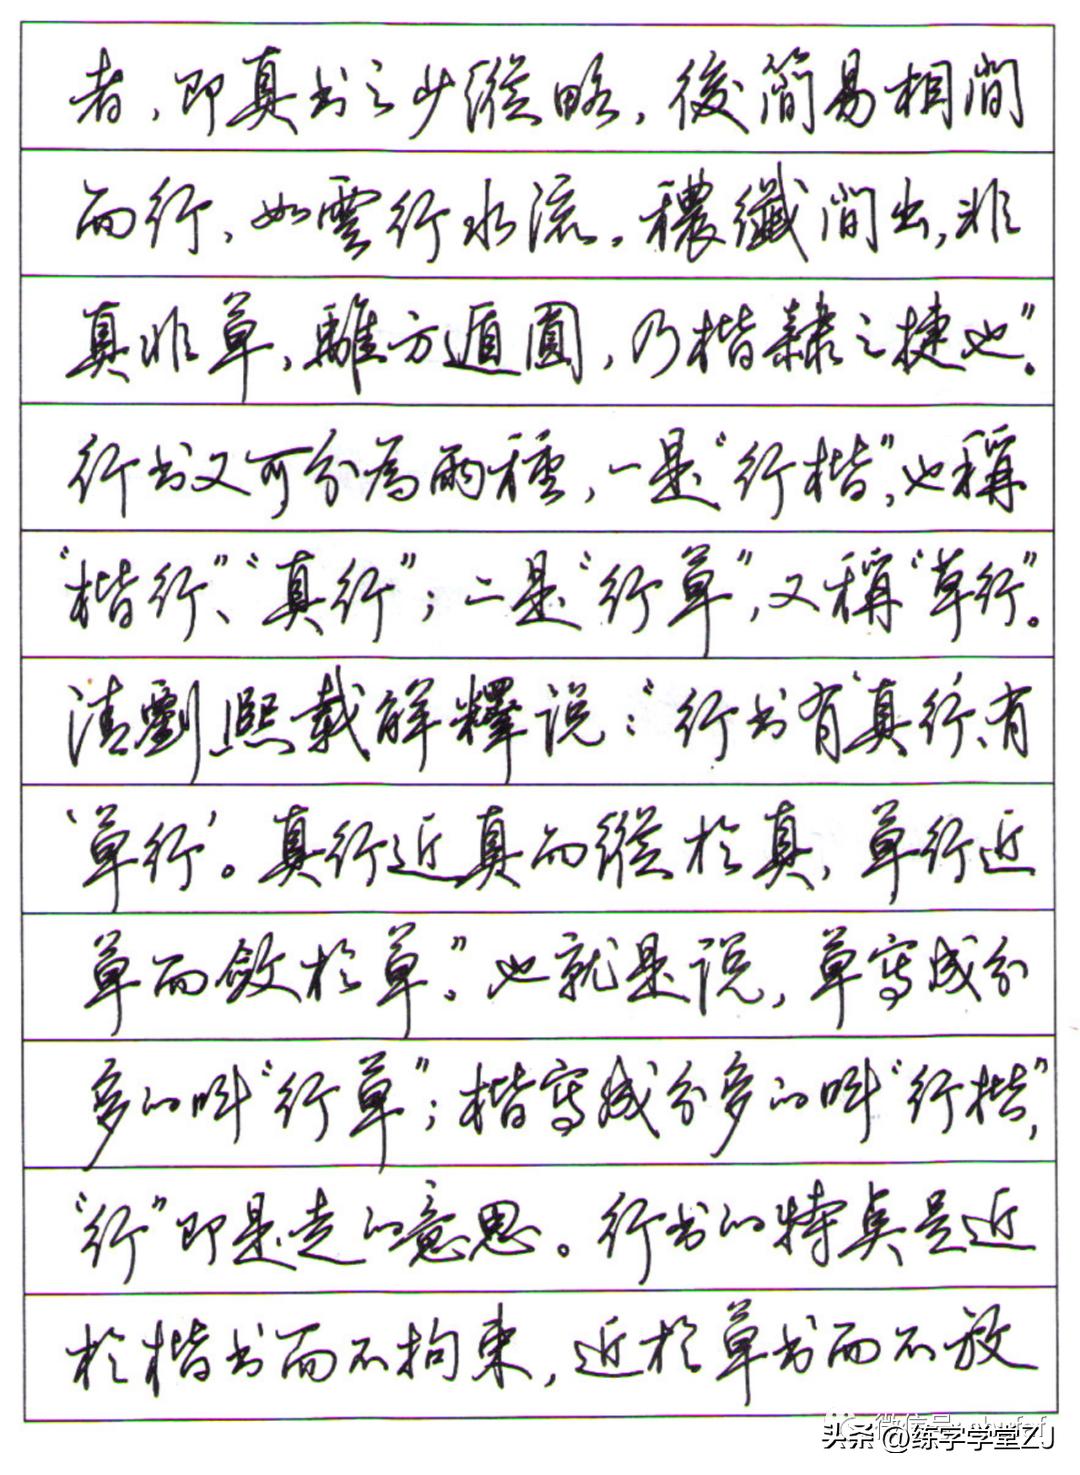 者，即真书之少縱略，後简易相间
而行，如雲行水流，穠纖间出，非
真非草，離方遁圓，乃楷隸之捷也”。
行书又可分為兩種，一是“行楷”，也稱
“楷行”、“真行”；二是“行草”，又稱“草行”。
清劉熙载解釋说：“行书有‘真行’、有
‘草行’。真行近真而縱於真，草行近
草而斂於草。”也就是说，草寫成分
多的叫“行草”；楷寫成分多的叫“行楷”，
“行”即是走的意思。行书的特点是近
於楷书而不拘束，近於草书而不放
微信号:
头条 @练字学堂ZJ